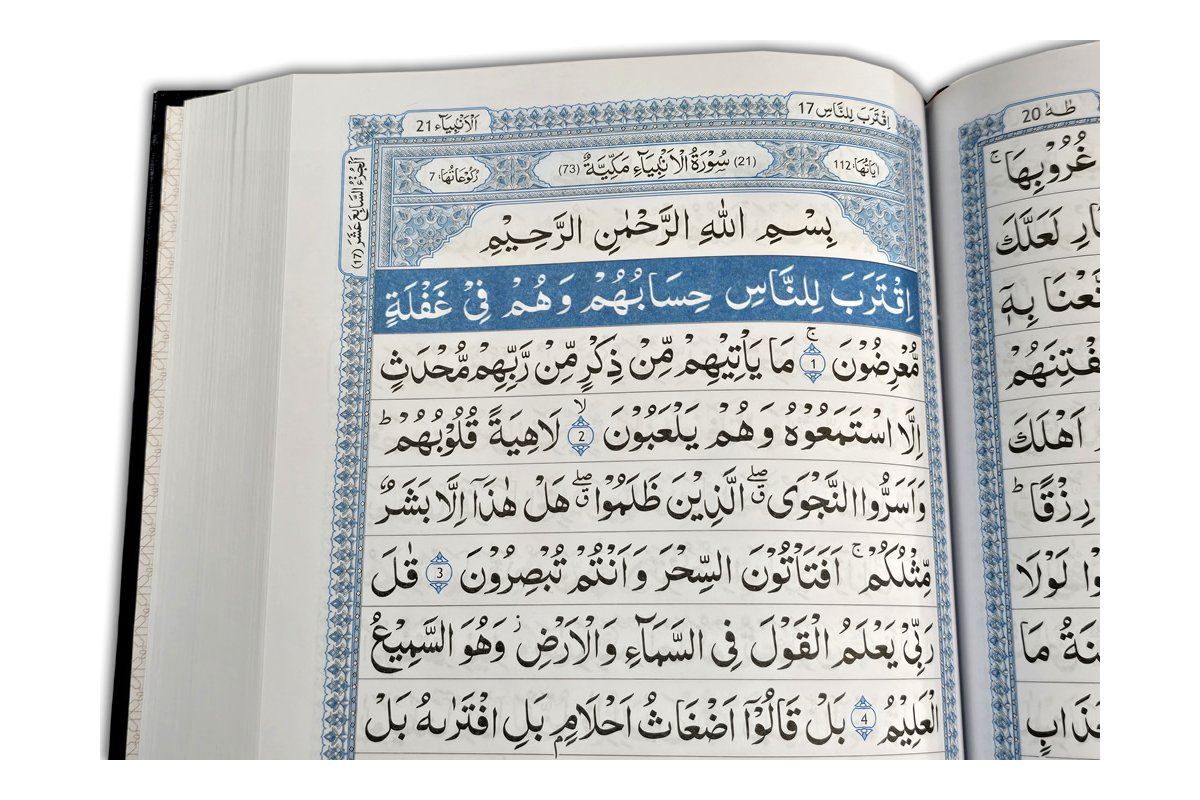 اَلْاَنْۢبِيَآء 21
اِقْتَرَبَ لِلنَّاسِ 17
اٰيَاتُهَا: 112
(21) سُوْرَةُ الْاَنْۢبِيَآءِ مَكِّيَّةٌ (73)
رُكُوْعَاتُهَا: 7
اَلْجُزْءُ السَّابِعَ عَشَرَ (17)
بِسْمِ اللّٰهِ الرَّحْمٰنِ الرَّحِيْمِ
اِقْتَرَبَ لِلنَّاسِ حِسَابُهُمْ وَهُمْ فِيْ غَفْلَةٍ
مُّعْرِضُوْنَ ۚ 1 مَا يَاْتِيْهِمْ مِّنْ ذِكْرٍ مِّنْ رَّبِّهِمْ مُّحْدَثٍ
اِلَّا اسْتَمَعُوْهُ وَهُمْ يَلْعَبُوْنَ ۙ 2 لَاهِيَةً قُلُوْبُهُمْ ؕ
وَاَسَرُّوا النَّجْوَى ۖۗ الَّذِيْنَ ظَلَمُوْا ۖۗ هَلْ هٰذَآ اِلَّا بَشَرٌ
مِّثْلُكُمْ ۚ اَفَتَاْتُوْنَ السِّحْرَ وَاَنْتُمْ تُبْصِرُوْنَ 3 قٰلَ
رَبِّيْ يَعْلَمُ الْقَوْلَ فِي السَّمَآءِ وَالْاَرْضِ ؗ وَهُوَ السَّمِيْعُ
الْعَلِيْمُ 4 بَلْ قَالُوْٓا اَضْغَاثُ اَحْلَامٍۭ بَلِ افْتَرٰىهُ بَلْ
طٰهٰ 20
غُرُوْبِهَا ۚ
لَعَلَّكَ
بِهٖٓ
اَهْلَكَ
رِزْقًا ؕ
لَوْلَا
مَا